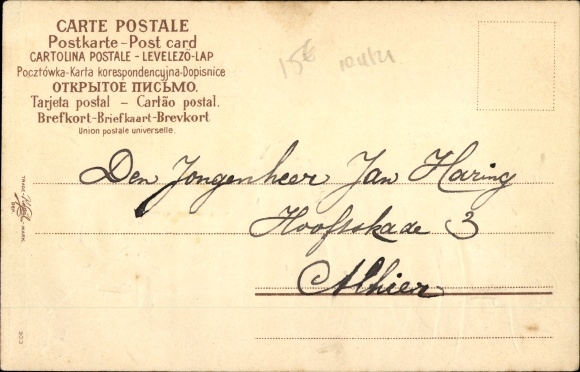 CARTE POSTALE
Postkarte-Post card
CARTOLINA POSTALE-LEVELEZŐ-LAP
Pocztówka-Karta korespondencyjna-Dopisnice
ОТКРЫТОЕ ПИСЬМО.
Tarjeta postal - Cartão postal.
Brefkort-Briefkaart-Brevkort
Union postale universelle.
15€
Den Jongenheer Jan Haring
Hooftskade 3
Alhier
TRADE-
MARK